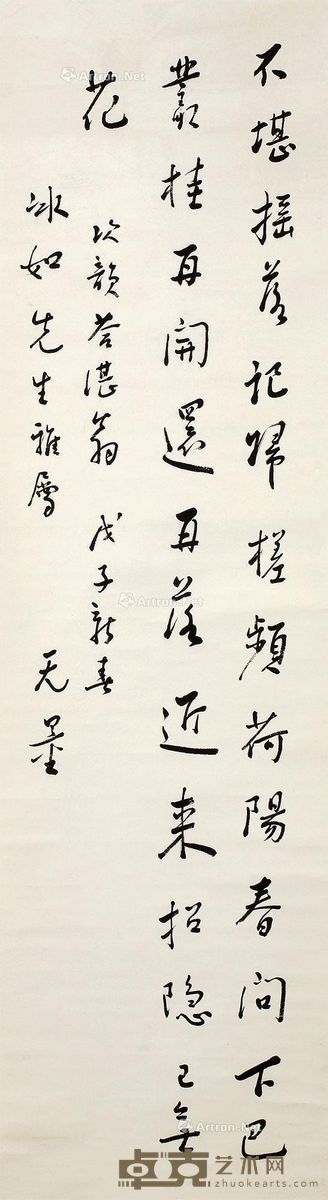 不堪摇落記歸槎頻荷陽春問下巴
叢桂再開還再落近来招隐已無
花
次韻答湛翁 戊子新春
冰如先生雅屬 无量
Artron.Net
Artron.Net
Artron.Net
Artron.Net
Artron.Net
卓克艺术网
zhuokearts.com